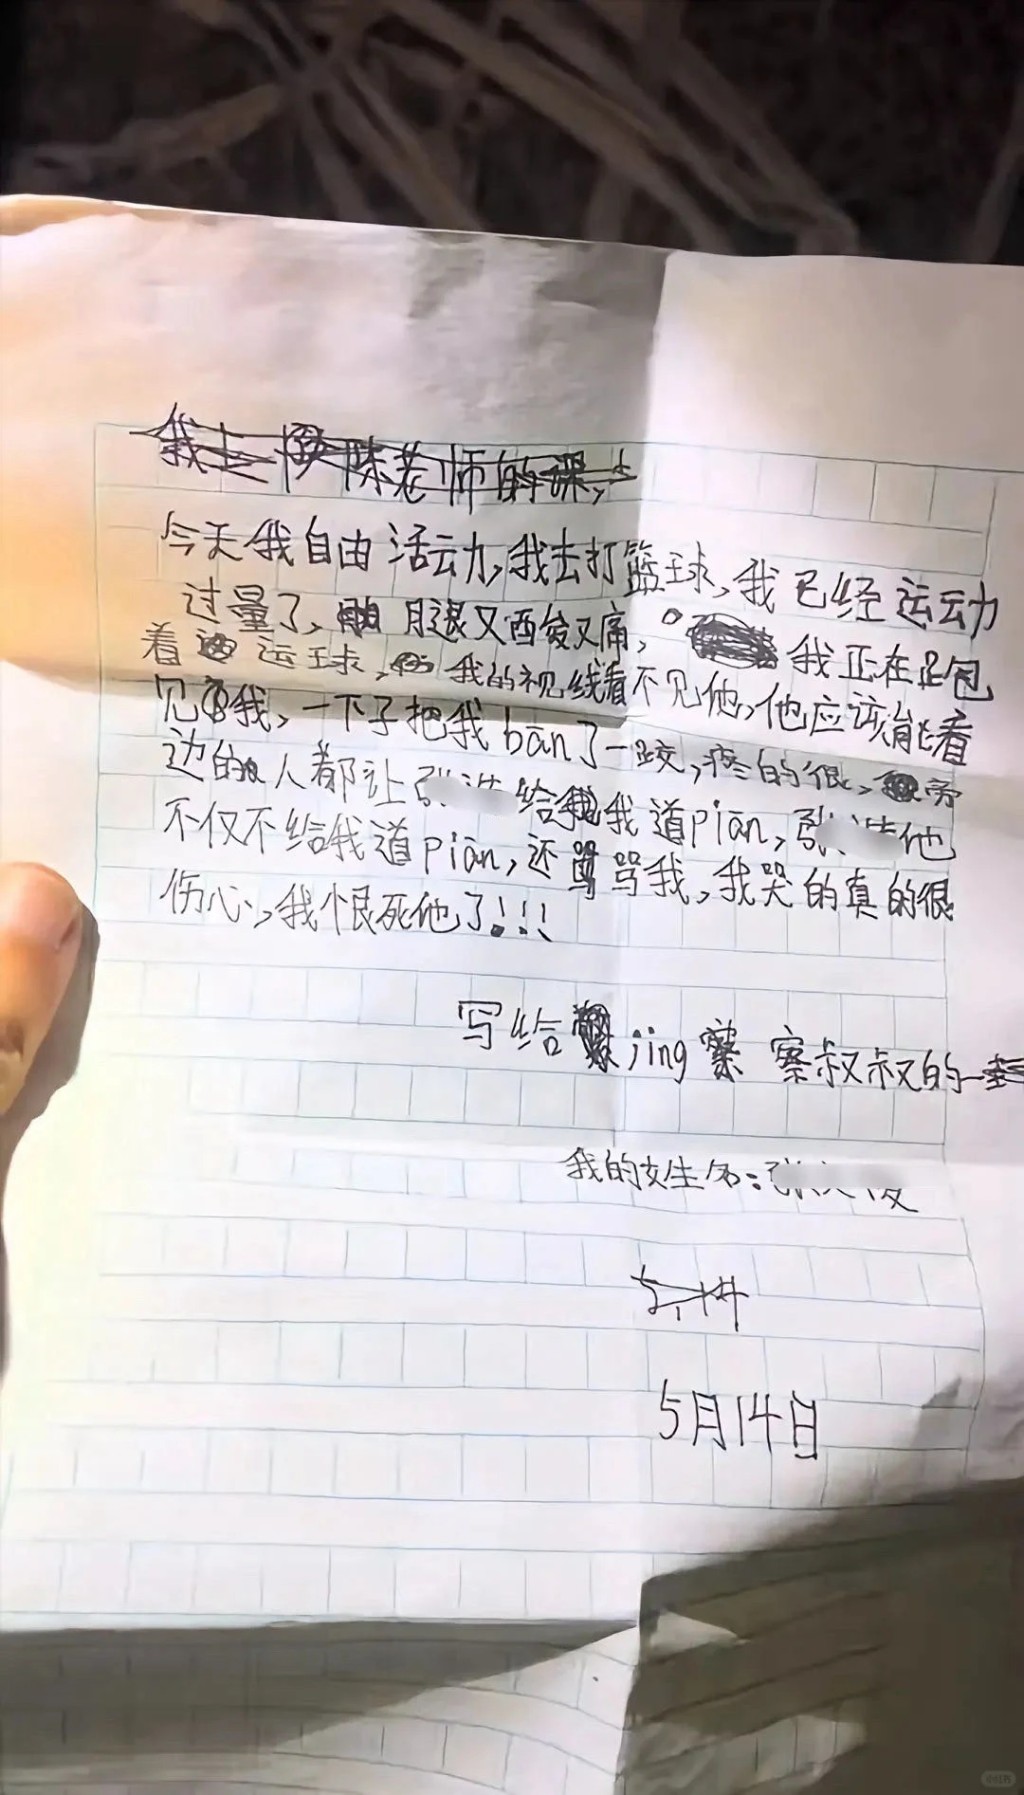 我上 陈老师的课，
今天我自由活动，我去打篮球，我已经运动
过量了，腿又酸又痛，我正在跑
着 运球，我的视线看不见他，他应该能看
见我，一下子把我bàn了一跤，疼的很，旁
边的人都让张 给我道piàn，张 他
不仅不给我道piàn，还骂骂我，我哭的真的很
伤心，我恨死他了！！！
写给 jing 察叔叔的一封
我的姓名：张
5月14日